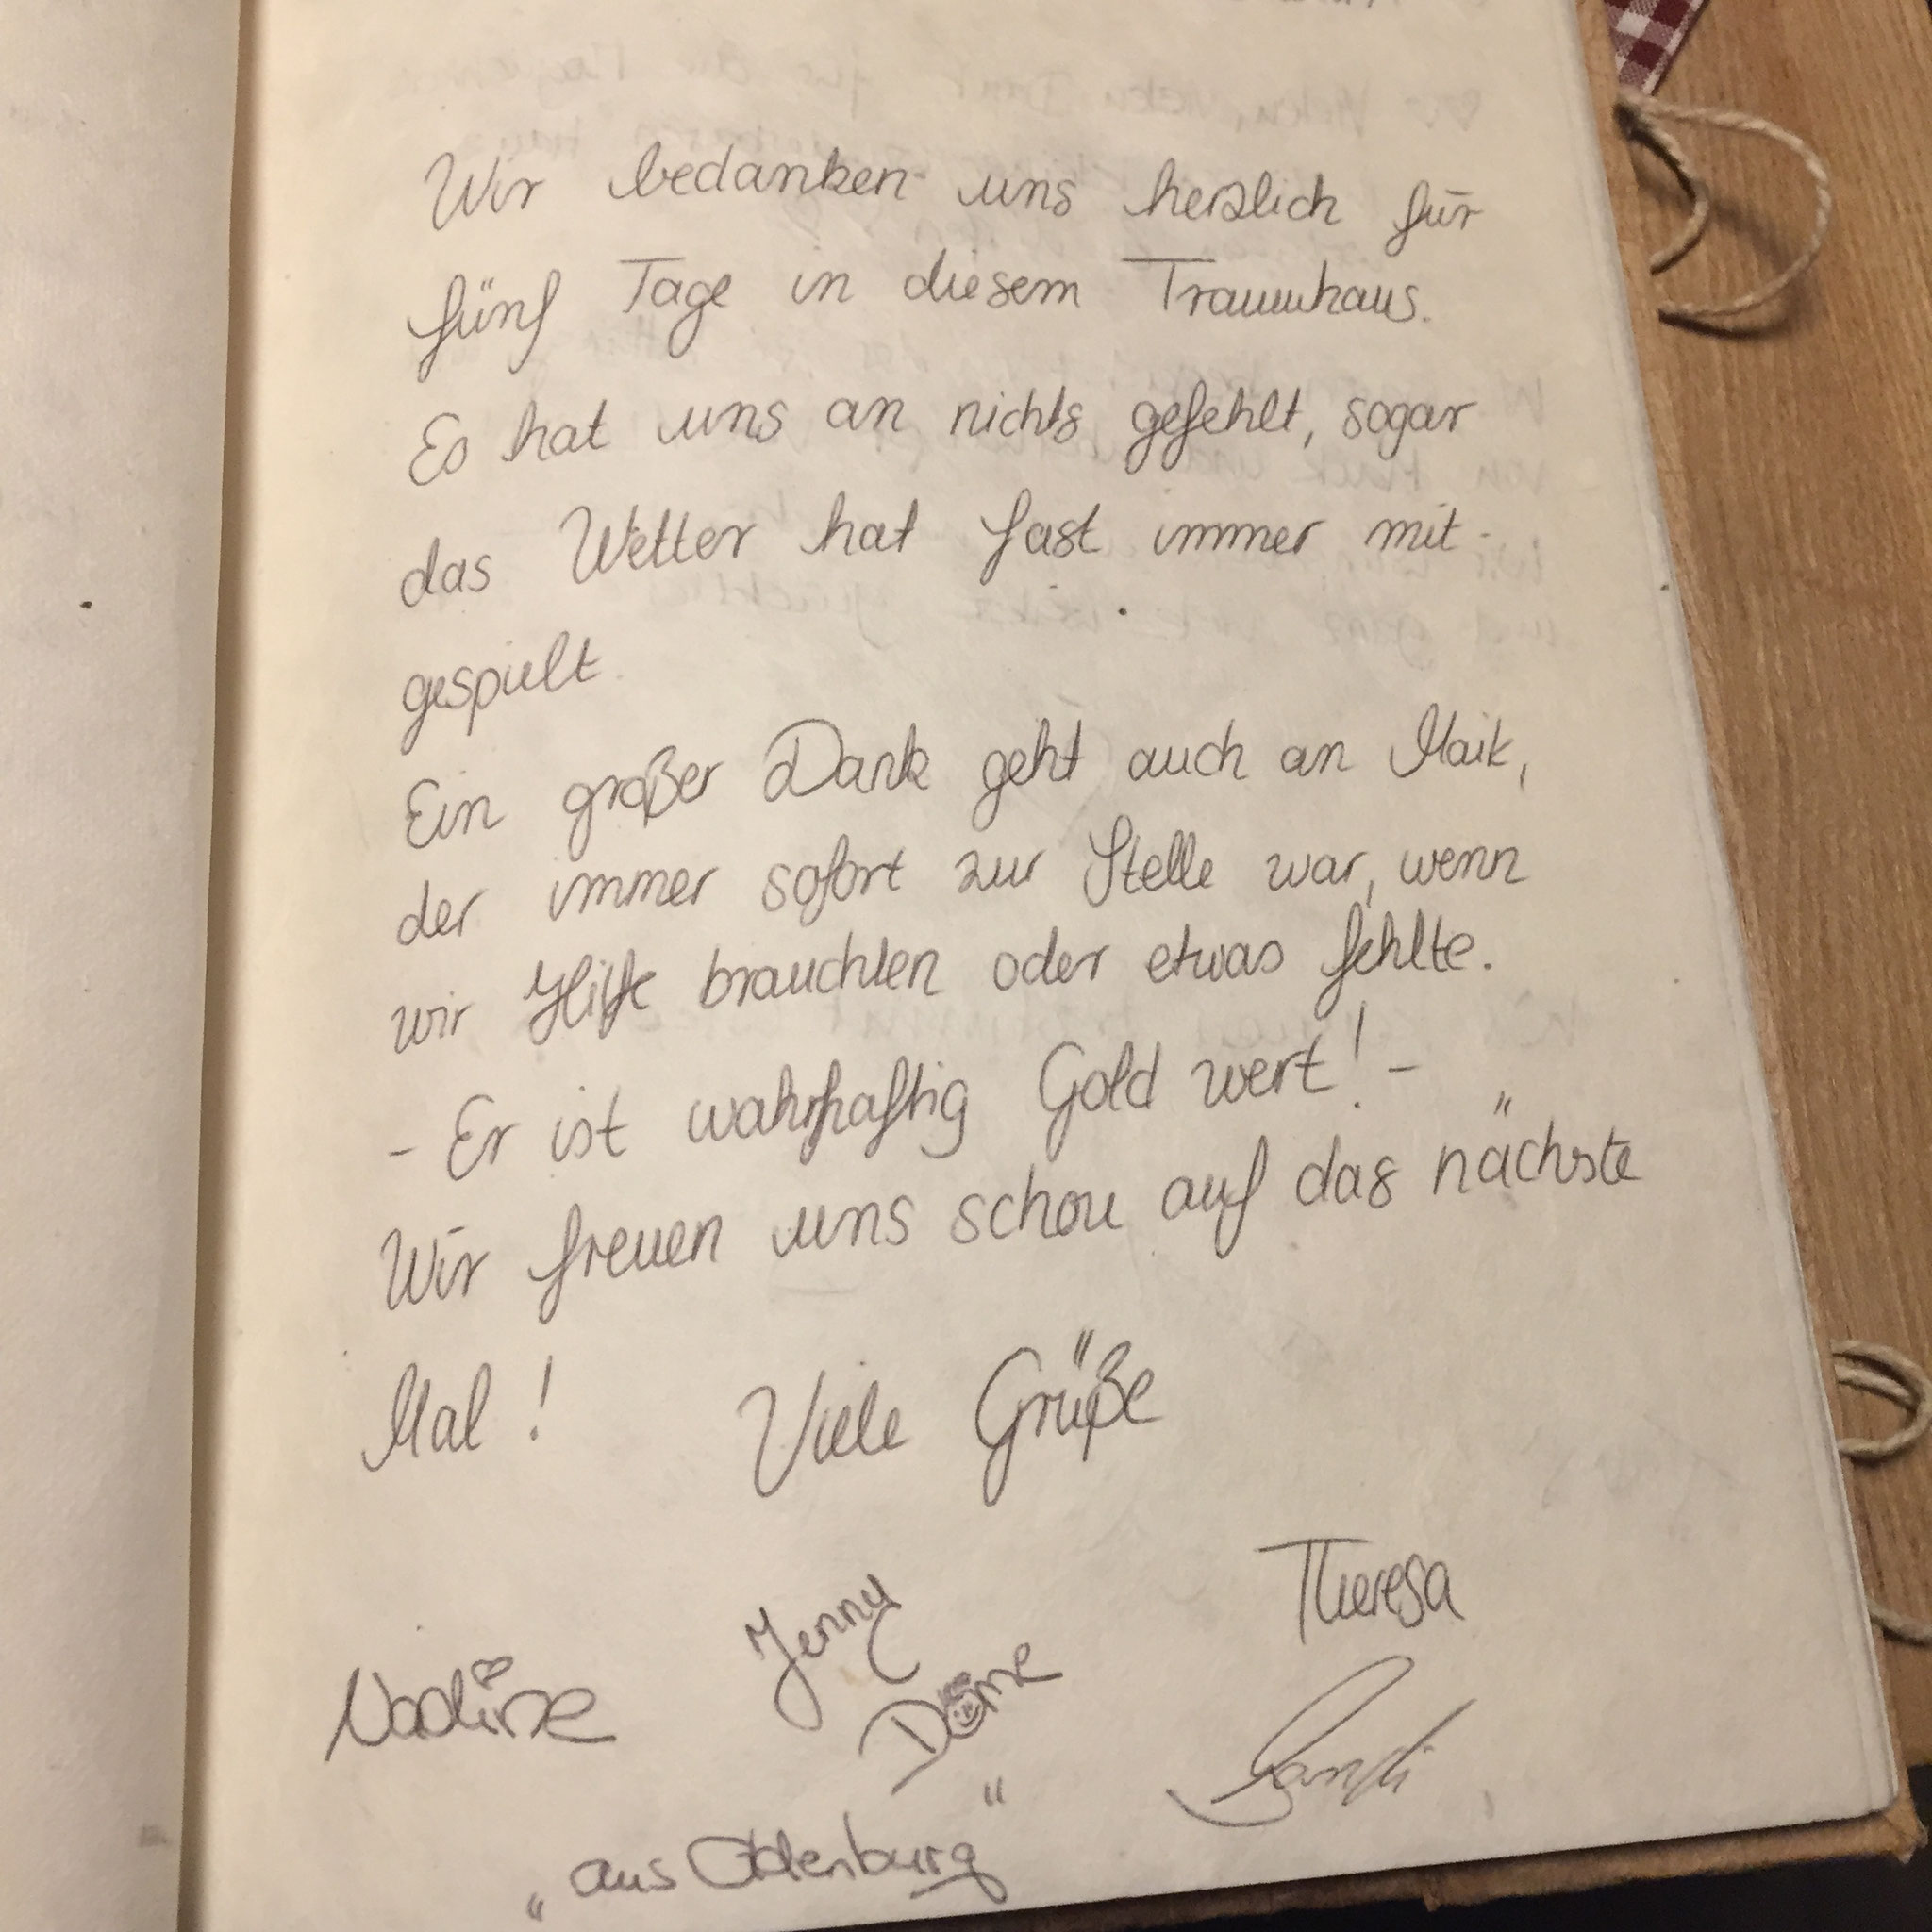 Wir bedanken uns herzlich für
fünf Tage in diesem Traumhaus.
Es hat uns an nichts gefehlt, sogar
das Wetter hat fast immer mit-
gespielt.
Ein großer Dank geht auch an Maik,
der immer sofort zur Stelle war, wenn
wir Hilfe brauchten oder etwas fehlte.
- Er ist wahrhaftig Gold wert! -
Wir freuen uns schon auf das nächste
Mal! Viele Grüße
Theresa
Jenny
Nadine
"aus Oldenburg"